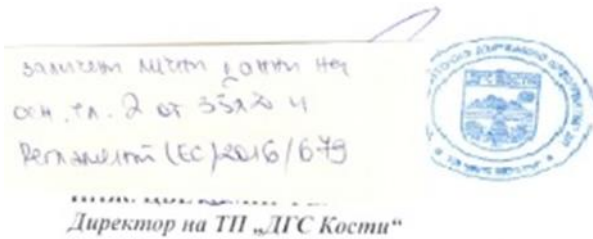 заличени лични данни на
осн. чл. 2 от ЗЗЛД и
Регламент (ЕС) 2016/679
Директор на ТП „ДГС Кости“